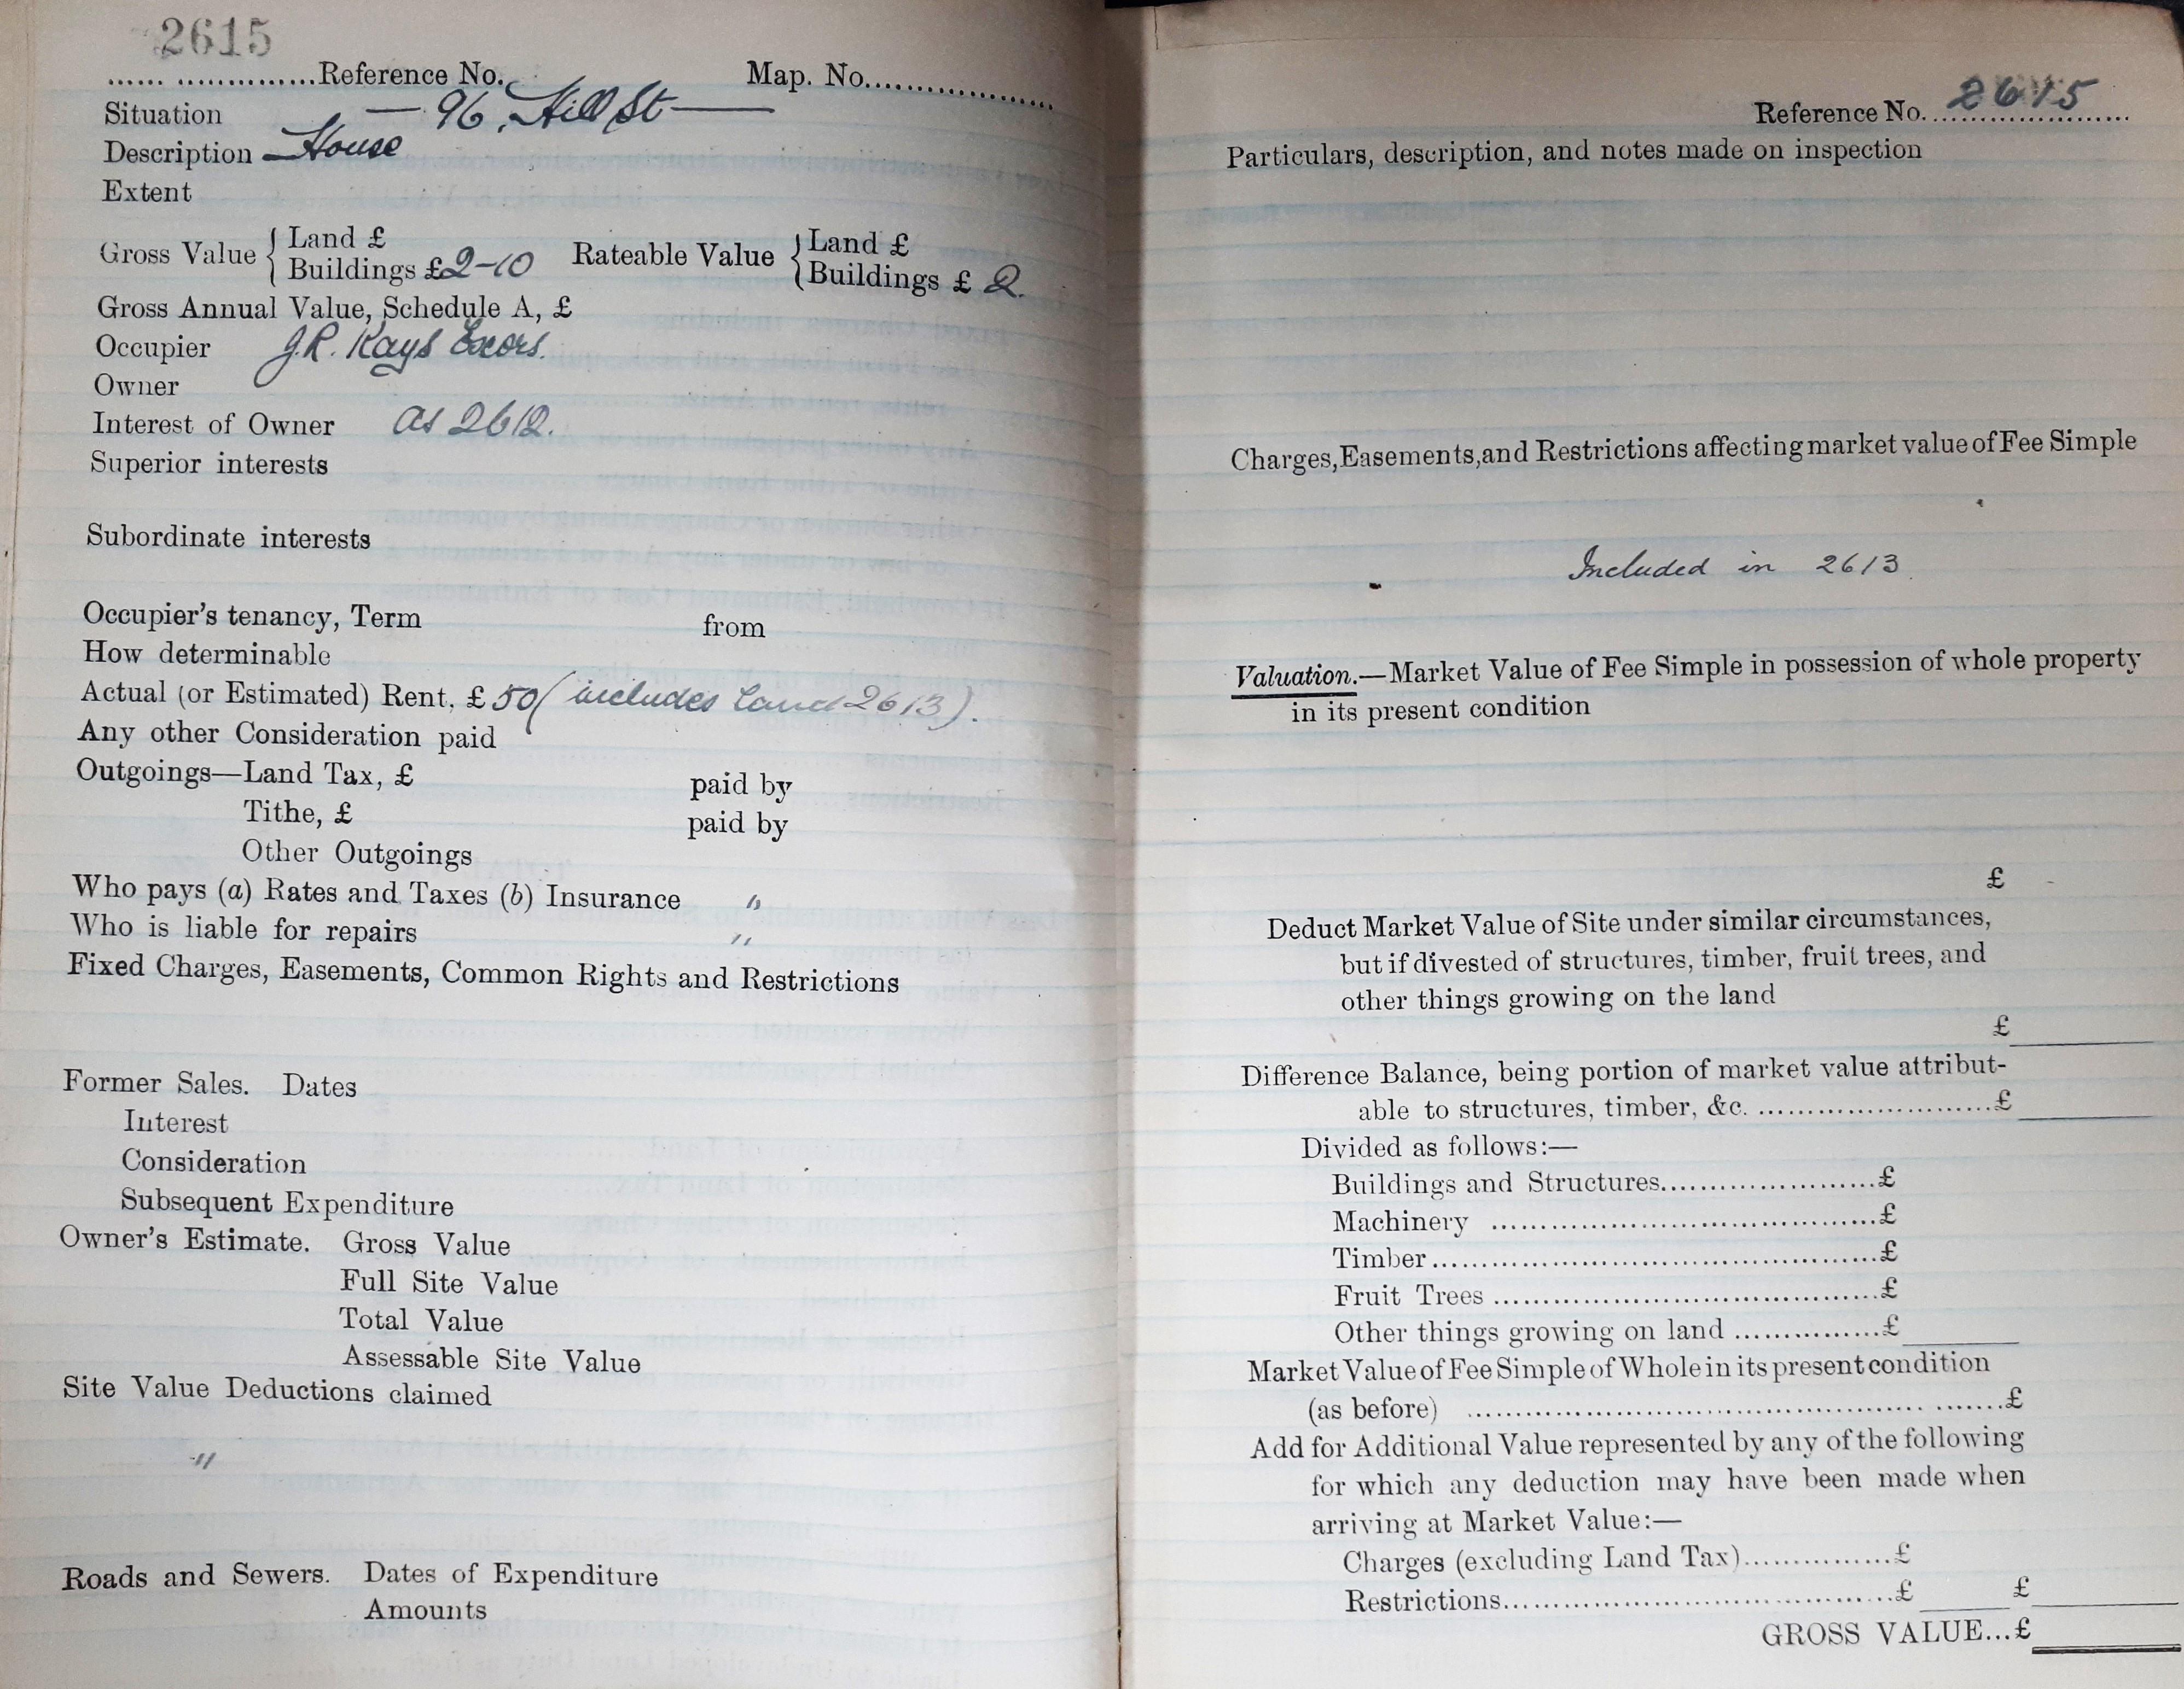 2615
...... ..............Reference No. Map. No.....................
Situation — 96, Hill St —
Description — House
Extent
Gross Value { Land £ Rateable Value { Land £
Buildings £2-10 Buildings £ 2.
Gross Annual Value, Schedule A, £
Occupier J.R. Kays Excors.
Owner
Interest of Owner as 2612.
Superior interests
Subordinate interests
Occupier's tenancy, Term from
How determinable
Actual (or Estimated) Rent, £ 50 (includes land 2613).
Any other Consideration paid
Outgoings—Land Tax, £ paid by
Tithe, £ paid by
Other Outgoings
Who pays (a) Rates and Taxes (b) Insurance "
Who is liable for repairs "
Fixed Charges, Easements, Common Rights and Restrictions
Former Sales. Dates
Interest
Consideration
Subsequent Expenditure
Owner's Estimate. Gross Value
Full Site Value
Total Value
Assessable Site Value
Site Value Deductions claimed
"
Roads and Sewers. Dates of Expenditure
Amounts
Reference No. 2615
Particulars, description, and notes made on inspection
Charges, Easements, and Restrictions affecting market value of Fee Simple
Included in 2613
Valuation.—Market Value of Fee Simple in possession of whole property
in its present condition
£
Deduct Market Value of Site under similar circumstances,
but if divested of structures, timber, fruit trees, and
other things growing on the land
£
Difference Balance, being portion of market value attribut-
able to structures, timber, &c. ..........................£
Divided as follows:—
Buildings and Structures........................£
Machinery ...........................................£
Timber..................................................£
Fruit Trees ...........................................£
Other things growing on land ................£
Market Value of Fee Simple of Whole in its present condition
(as before) .....................................................£
Add for Additional Value represented by any of the following
for which any deduction may have been made when
arriving at Market Value:—
Charges (excluding Land Tax)................£
Restrictions...........................................£ £
GROSS VALUE...£